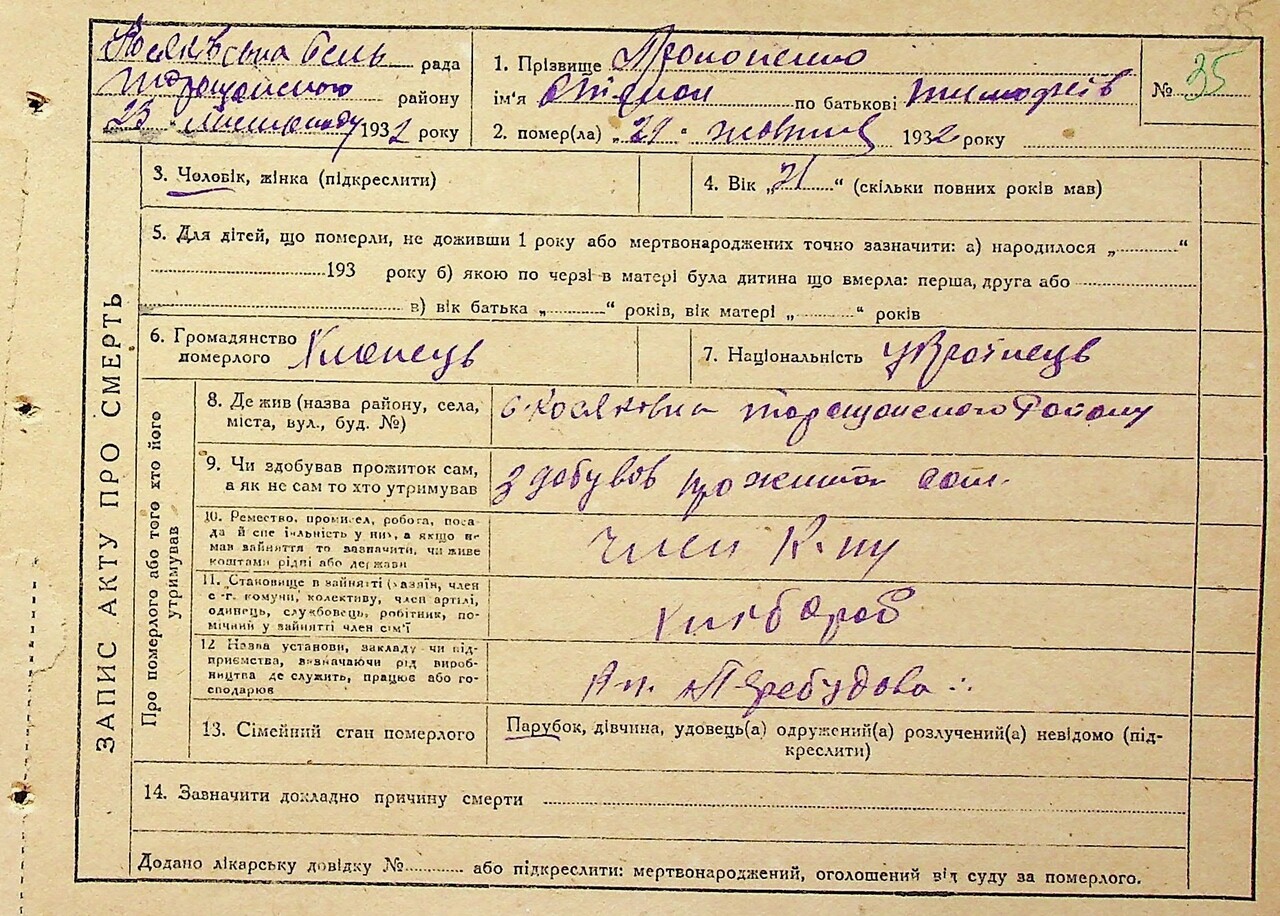 Косяківська сель рада
Таращанського району
23 листопаду 1932 року
1. Прізвище Прокопенко
ім'я Степан по батькові Тимофеїв
2. помер(ла) „29" жовтня 1932 року
№ 35
ЗАПИС АКТУ ПРО СМЕРТЬ
3. Чоловік, жінка (підкреслити)
4. Вік „21" (скільки повних років мав)
5. Для дітей, що померли, не доживши 1 року або мертвонароджених точно зазначити: а) народилося „..........“
193 року б) якою по черзі в матері була дитина що вмерла: перша, друга або
в) вік батька „..........“ років, вік матері „..........“ років
6. Громадянство
померлого Хлопець
7. Національність Українець
Про померлого або того хто його
утримував
8. Де жив (назва району, села,
міста, вул., буд. №)
с. Косяковка Таращанского Району
9. Чи здобував прожиток сам,
а як не сам то хто утримував
здобував прожиток сам.
10. Ремество, промисел, робота, поса-
да й спеціяльність у них, а якщо не
мав зайняття то зазначити, чи живе
коштами рідні або держави
член К-пу
11. Становище в зайнятті (хазяїн, член
с-г. комуни, колективу, член артілі,
одинець, службовець, робітник, по-
мічний у зайнятті член сім'ї
Хлібороб
12 Назва установи, закладу чи під-
приємства, визначаючи рід вироб-
ництва де служить, працює або го-
сподарює
Перебудова
13. Сімейний стан померлого
Парубок, дівчина, удовець(а) одружений(а) розлучений(а) невідомо (під-
креслити)
14. Зазначити докладно причину смерти
Додано лікарську довідку №............ або підкреслити: мертвонароджений, оголошений від суду за померлого.